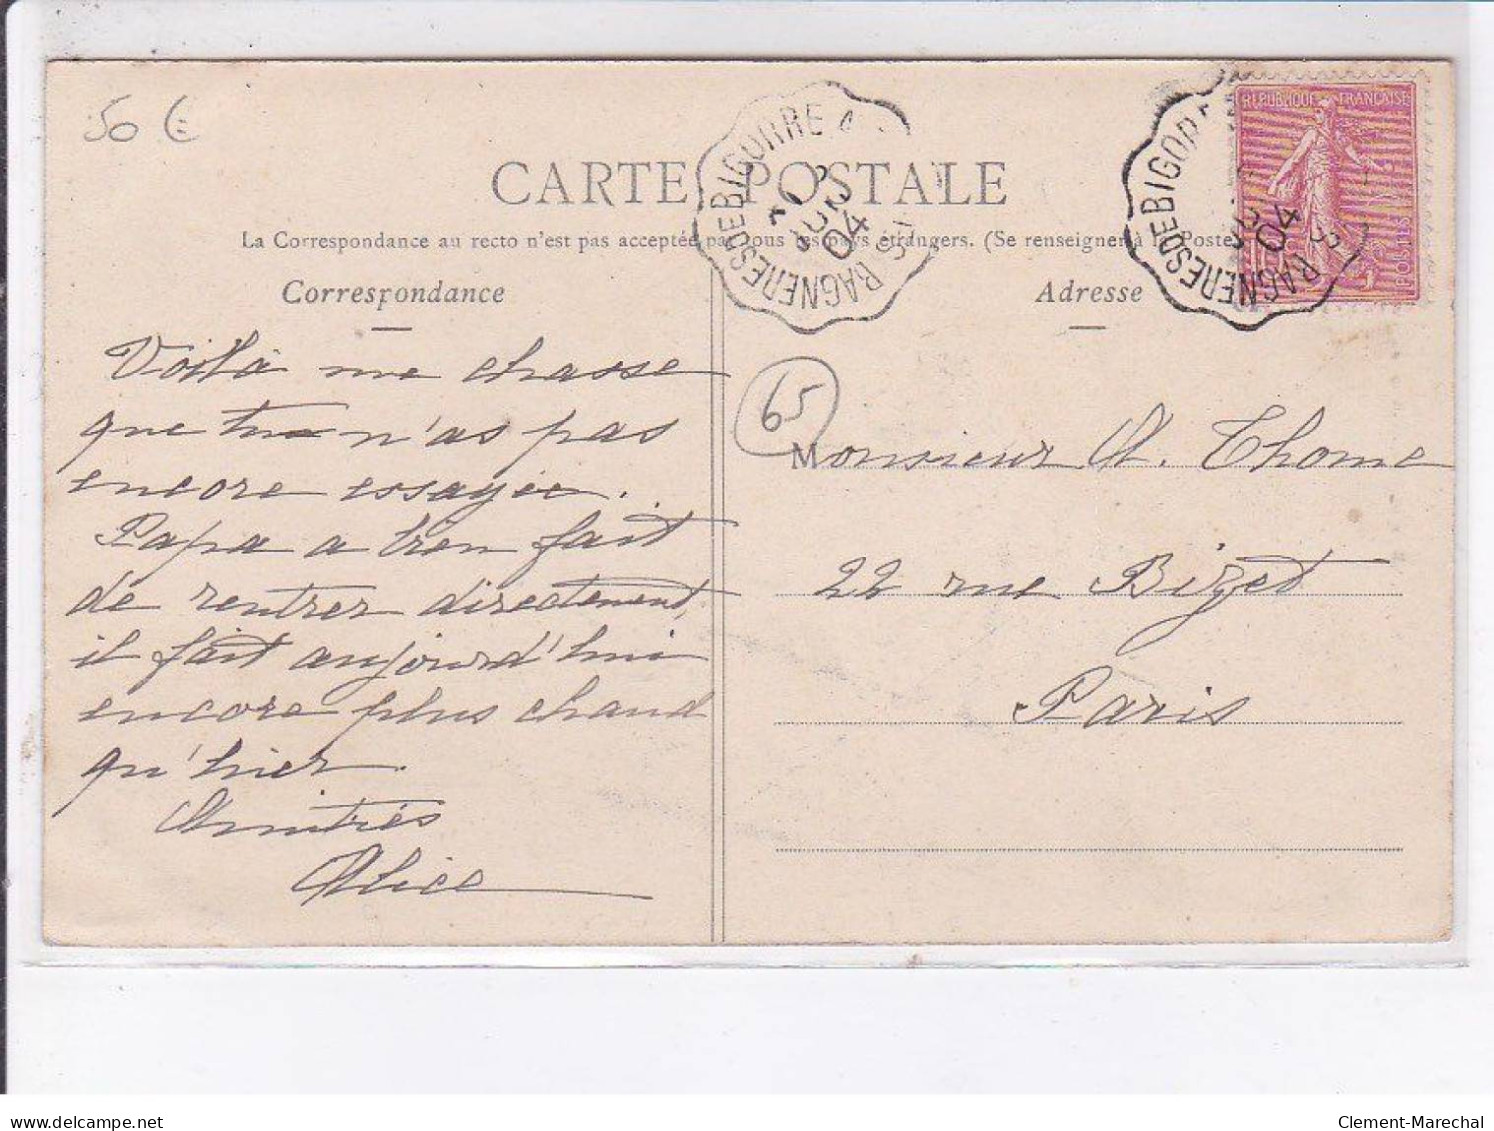 50 €
CARTE POSTALE
La Correspondance au recto n'est pas acceptée par tous les pays étrangers. (Se renseigner à la Poste
Correspondance
Adresse
REPUBLIQUE FRANÇAISE
POSTES
BAGNERES DE BIGORRE A
04
BAGNERES DE BIGORRE
04
Voilà une chasse
que tu n'as pas
encore essayée.
Papa a bien fait
de rentrer directement,
il fait aujourd'hui
encore plus chaud
qu'hier.
Amitiés
Alice
65
Monsieur A. Thome
22 rue Bizet
Paris
delcampe.net
Clement-Marechal